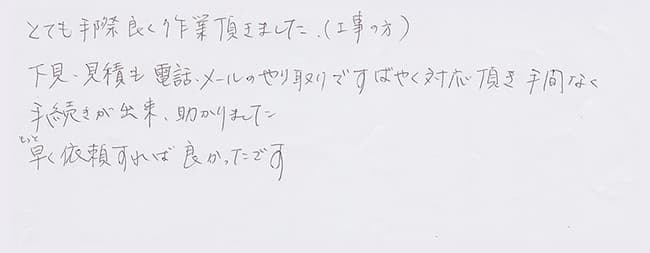 とても手際良く作業頂きました.(工事の方)
下見、見積も電話、メールのやり取りですばやく対応頂き手間なく
手続きが出来、助かりました
もっと
早く依頼すれば良かったです